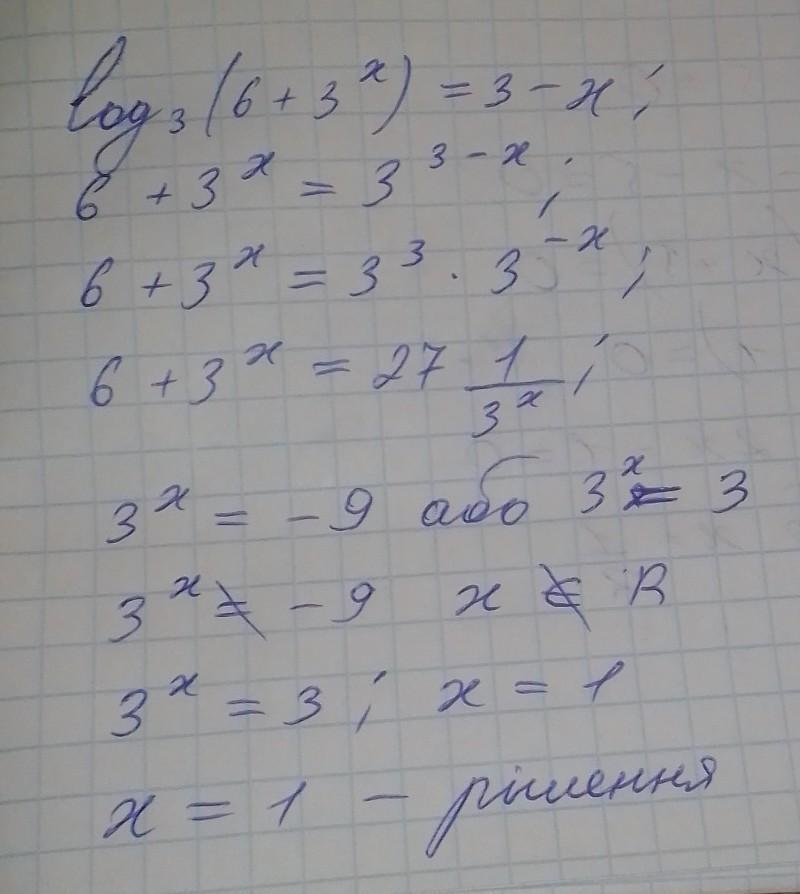 log₃(6 + 3ˣ) = 3 - x;
6 + 3ˣ = 3³⁻ˣ;
6 + 3ˣ = 3³ · 3⁻ˣ;
6 + 3ˣ = 27 1/3ˣ;
3ˣ = -9 або 3ˣ = 3
3ˣ ≠ -9 x ∉ R
3ˣ = 3; x = 1
x = 1 - рішення